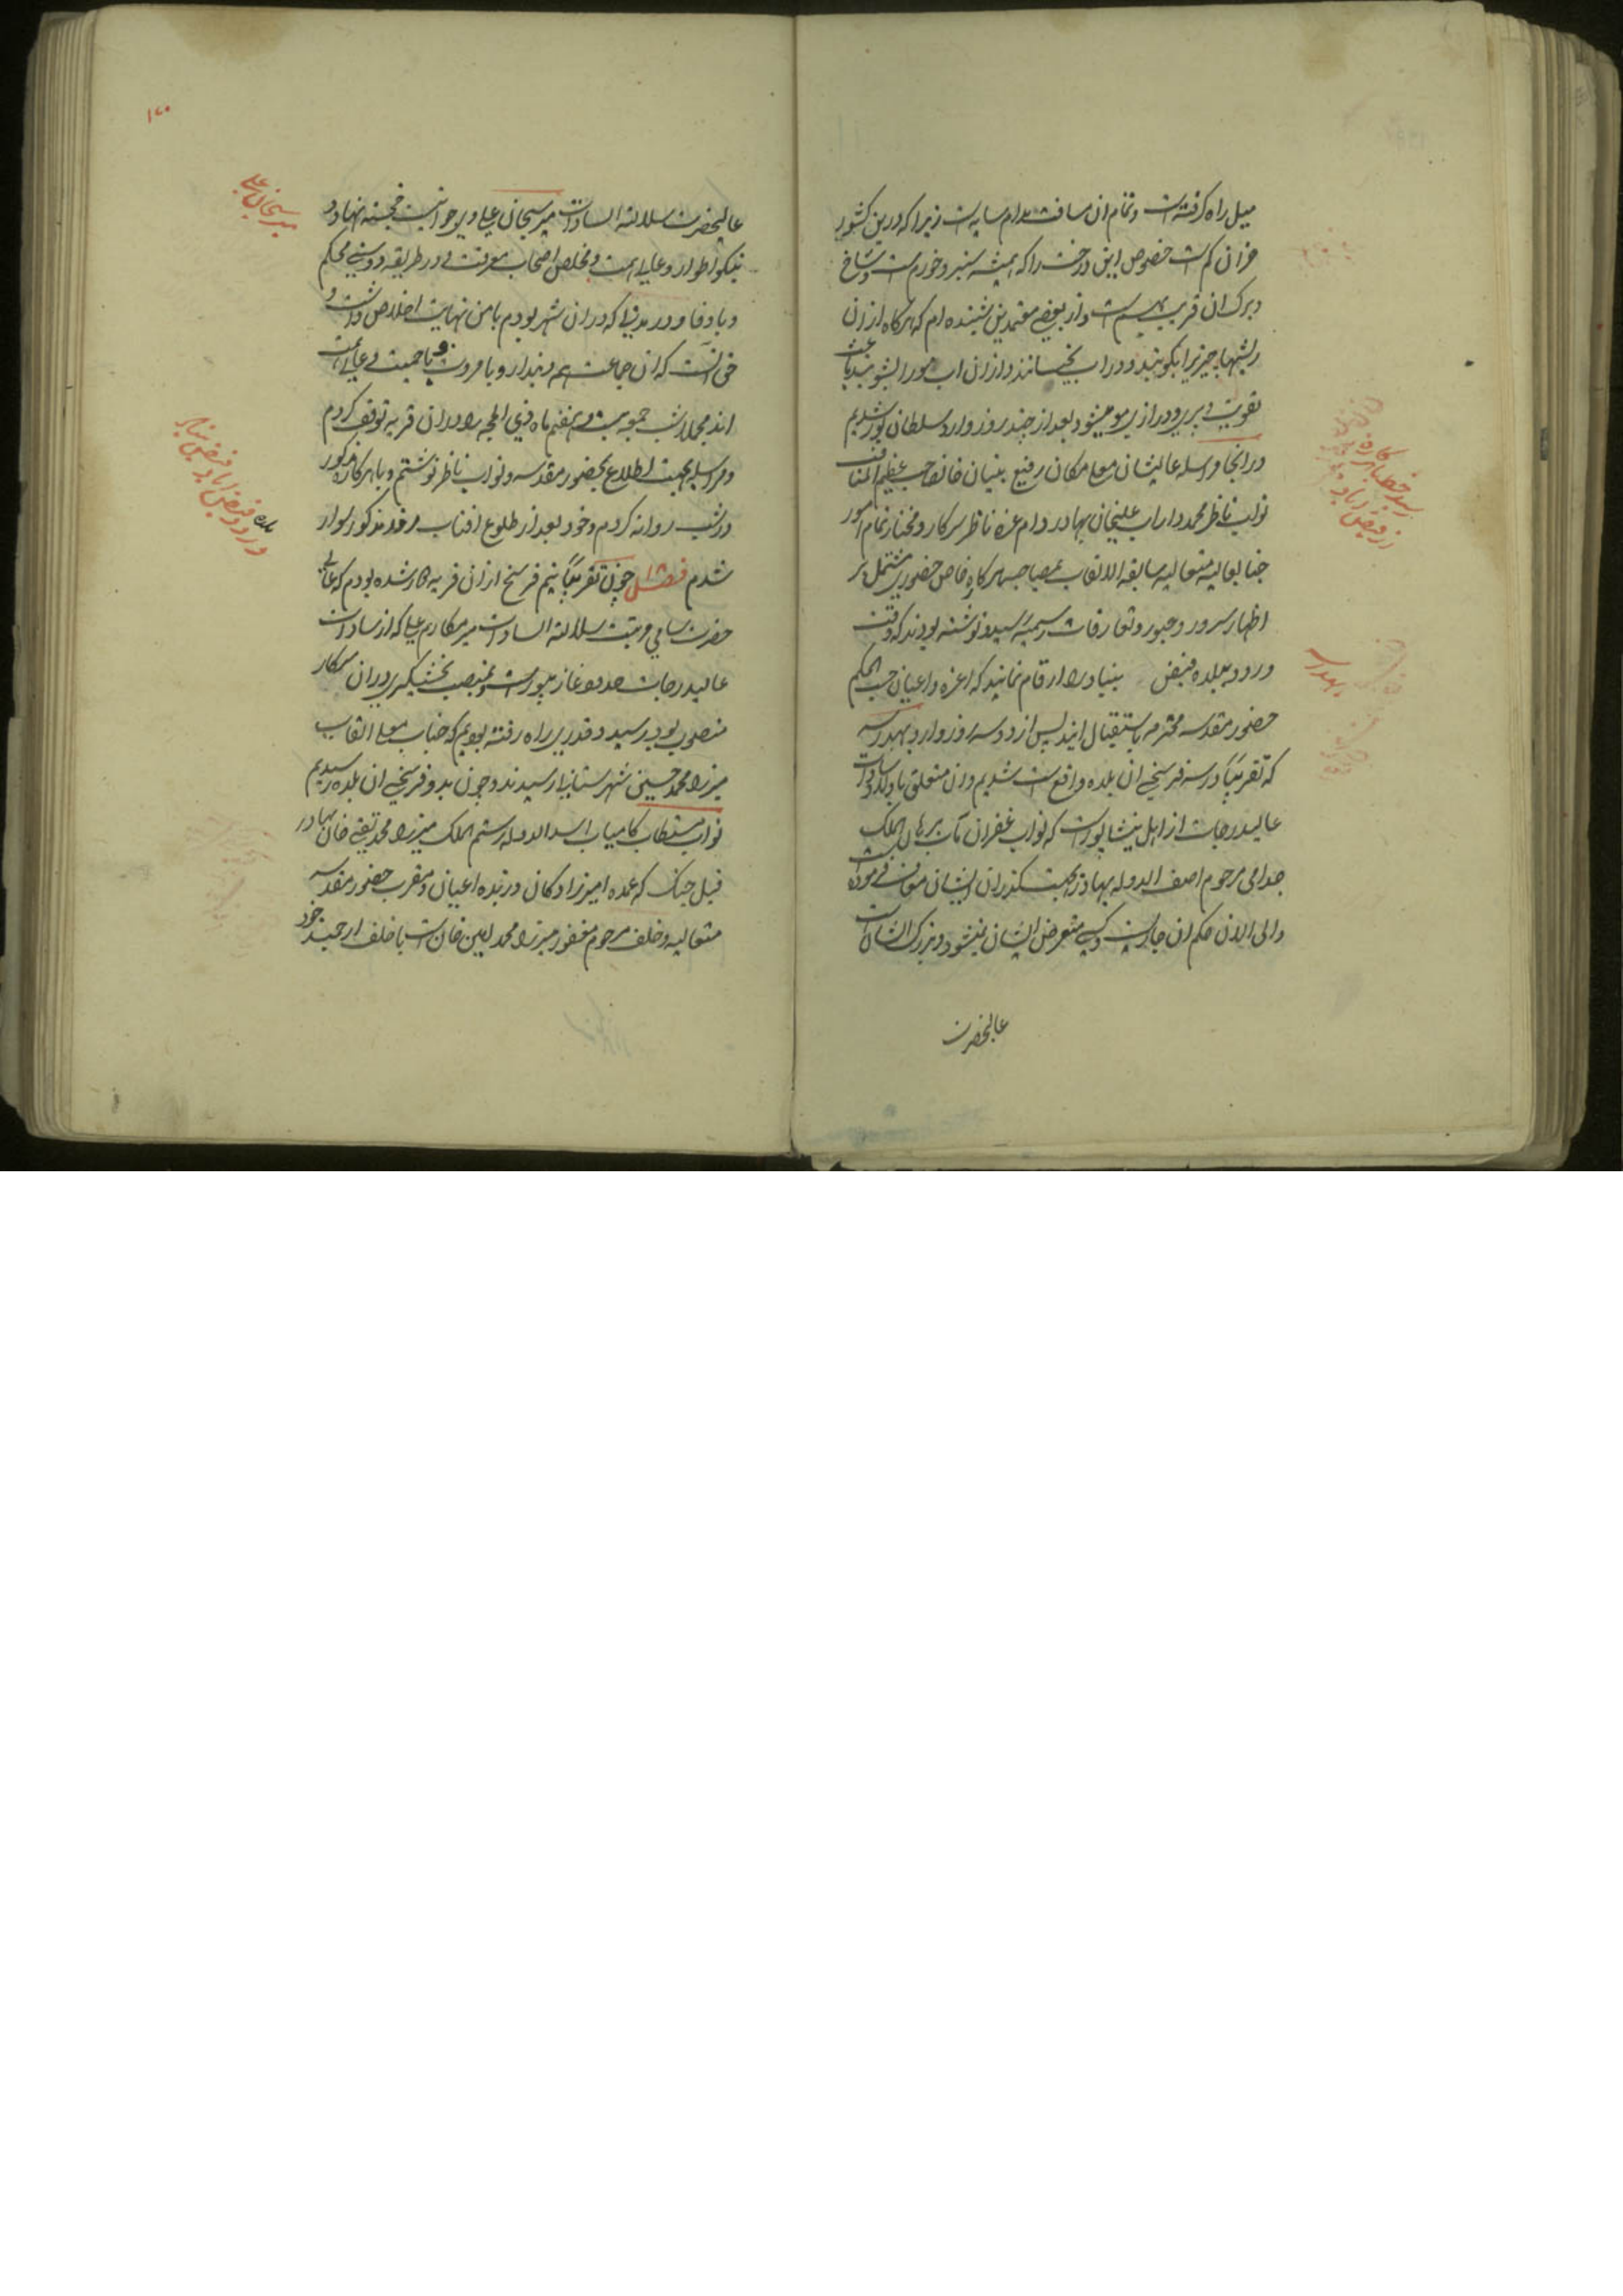 میل راه گرفته است و تمام ان مسافت مدام سایه است زیرا که درین کشور
خزان کم است خصوص این درخت را که همیشه سبز و خورم است و شاخ
و برک ان قریب بهم است و از بعضی معتمدین شنیده ام که هرکاه از ان
ریشهها چیزیرا بکوبند و در اب بخیسانند و از ان اب مو را بشویند باعث
تقویت و درازی مو میشود و بعد از چند روز وارد سلطان پور شدیم
در انجا مراسله عالیشان معلی مکان رفیع بنیان خانصاحب عظیم المناقب
نواب ناظر محمد داراب علیخان بهادر دام عزه ناظر سرکار و مختار تمام امور
جنابعالیه متعالیه سابقه الالقاب بمصاحب هرکاره خاص حضور مشتمل بر
اظهار سرور و حبور و تعارفات رسمیه رسید و نوشته بودند که وقت
ورود ببلده فیض بنیاد را ارقام نمایند که اعزه و اعیان حسب الحکم
حضور مقدسه محترمه باستقبال ایند پس از دو سه روز وارد بهدرسه
که تقریبًا در سه فرسخی ان بلده واقع است شدیم و ان متعلق باولاد سادات
عالیدرجات از اهل نیشاپور است که نواب غفران مآب برهان الملک
جد امی مرحوم اصف الدوله بهادر بجهت گذران ایشان معاف فرموده است
و الی الان حکم ان جاریست و کسی متعرض ایشان نمیشود و بزرک ایشان
عالیحضرت
رسید خط با هرکاره
از فیض اباد
بهدرسه
۱۷۰
عالیحضرت سلالة السادات میر سبحان علی و پیر جوانیست خجسته نهاد و
نیکو اطوار و عالی همت و مخلص اصحاب معرفت و در طریقه دوستی محکم
و باوفا و در مدتی که در ان شهر بودم با من نهایت اخلاص داشت و
حق انست که ان جماعت همه دیندار و با مروت و با حمیت و عالی همت
اند مجملا شب جمعه بیست و هفتم ماه ذی الحجه را در ان قریه توقف کردم
و مراسله بجهت اطلاع بحضور مقدسه و نواب ناظر نوشتم و با هرکاره مذکور
در شب روانه کردم و خود بعد از طلوع افتاب مرقد مذکور سوار
شدم فصل چون تقریبًا نیم فرسخ از ان قریه کار شده بودم که عالی
حضرت سامی مرتبت سلالة السادات میر مکارم علی که از سادات
عالیدرجات صدوه غازیپور است و بمنصب بخشیگری در ان سرکار
منصوب بود رسید و قدری راه رفته بودیم که جناب معلی القاب
میرزا محمد حسینی شهرستانی رسیدند و چون بدو فرسخی ان بلده رسیدیم
نواب مستطاب کامیاب اسد الدوله رستم الملک میرزا محمد تقی خان بهادر
فیل جنک که عمده امیرزادکان و زبده اعیان و مقرب حضور مقدسه
متعالیه و خلف مرحوم مغفور میرزا محمد امین خان است با خلف ارجمند خود
میر سبحان علی
ورود فیض اباد فیض بنیاد